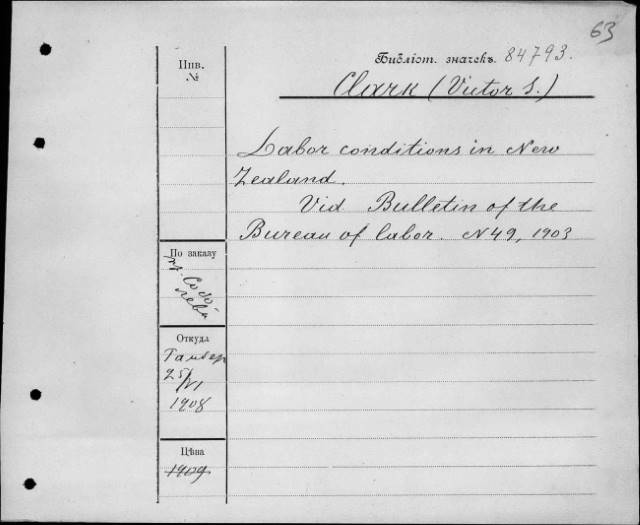 63
Инв.
№
Библіот. значекъ. 84793.
Clark (Victor S.)
Labor conditions in New
Zealand.
Vid Bulletin of the
Bureau of labor. N 49, 1903
По заказу
Откуда
25/VI
1908
Цѣна
1909